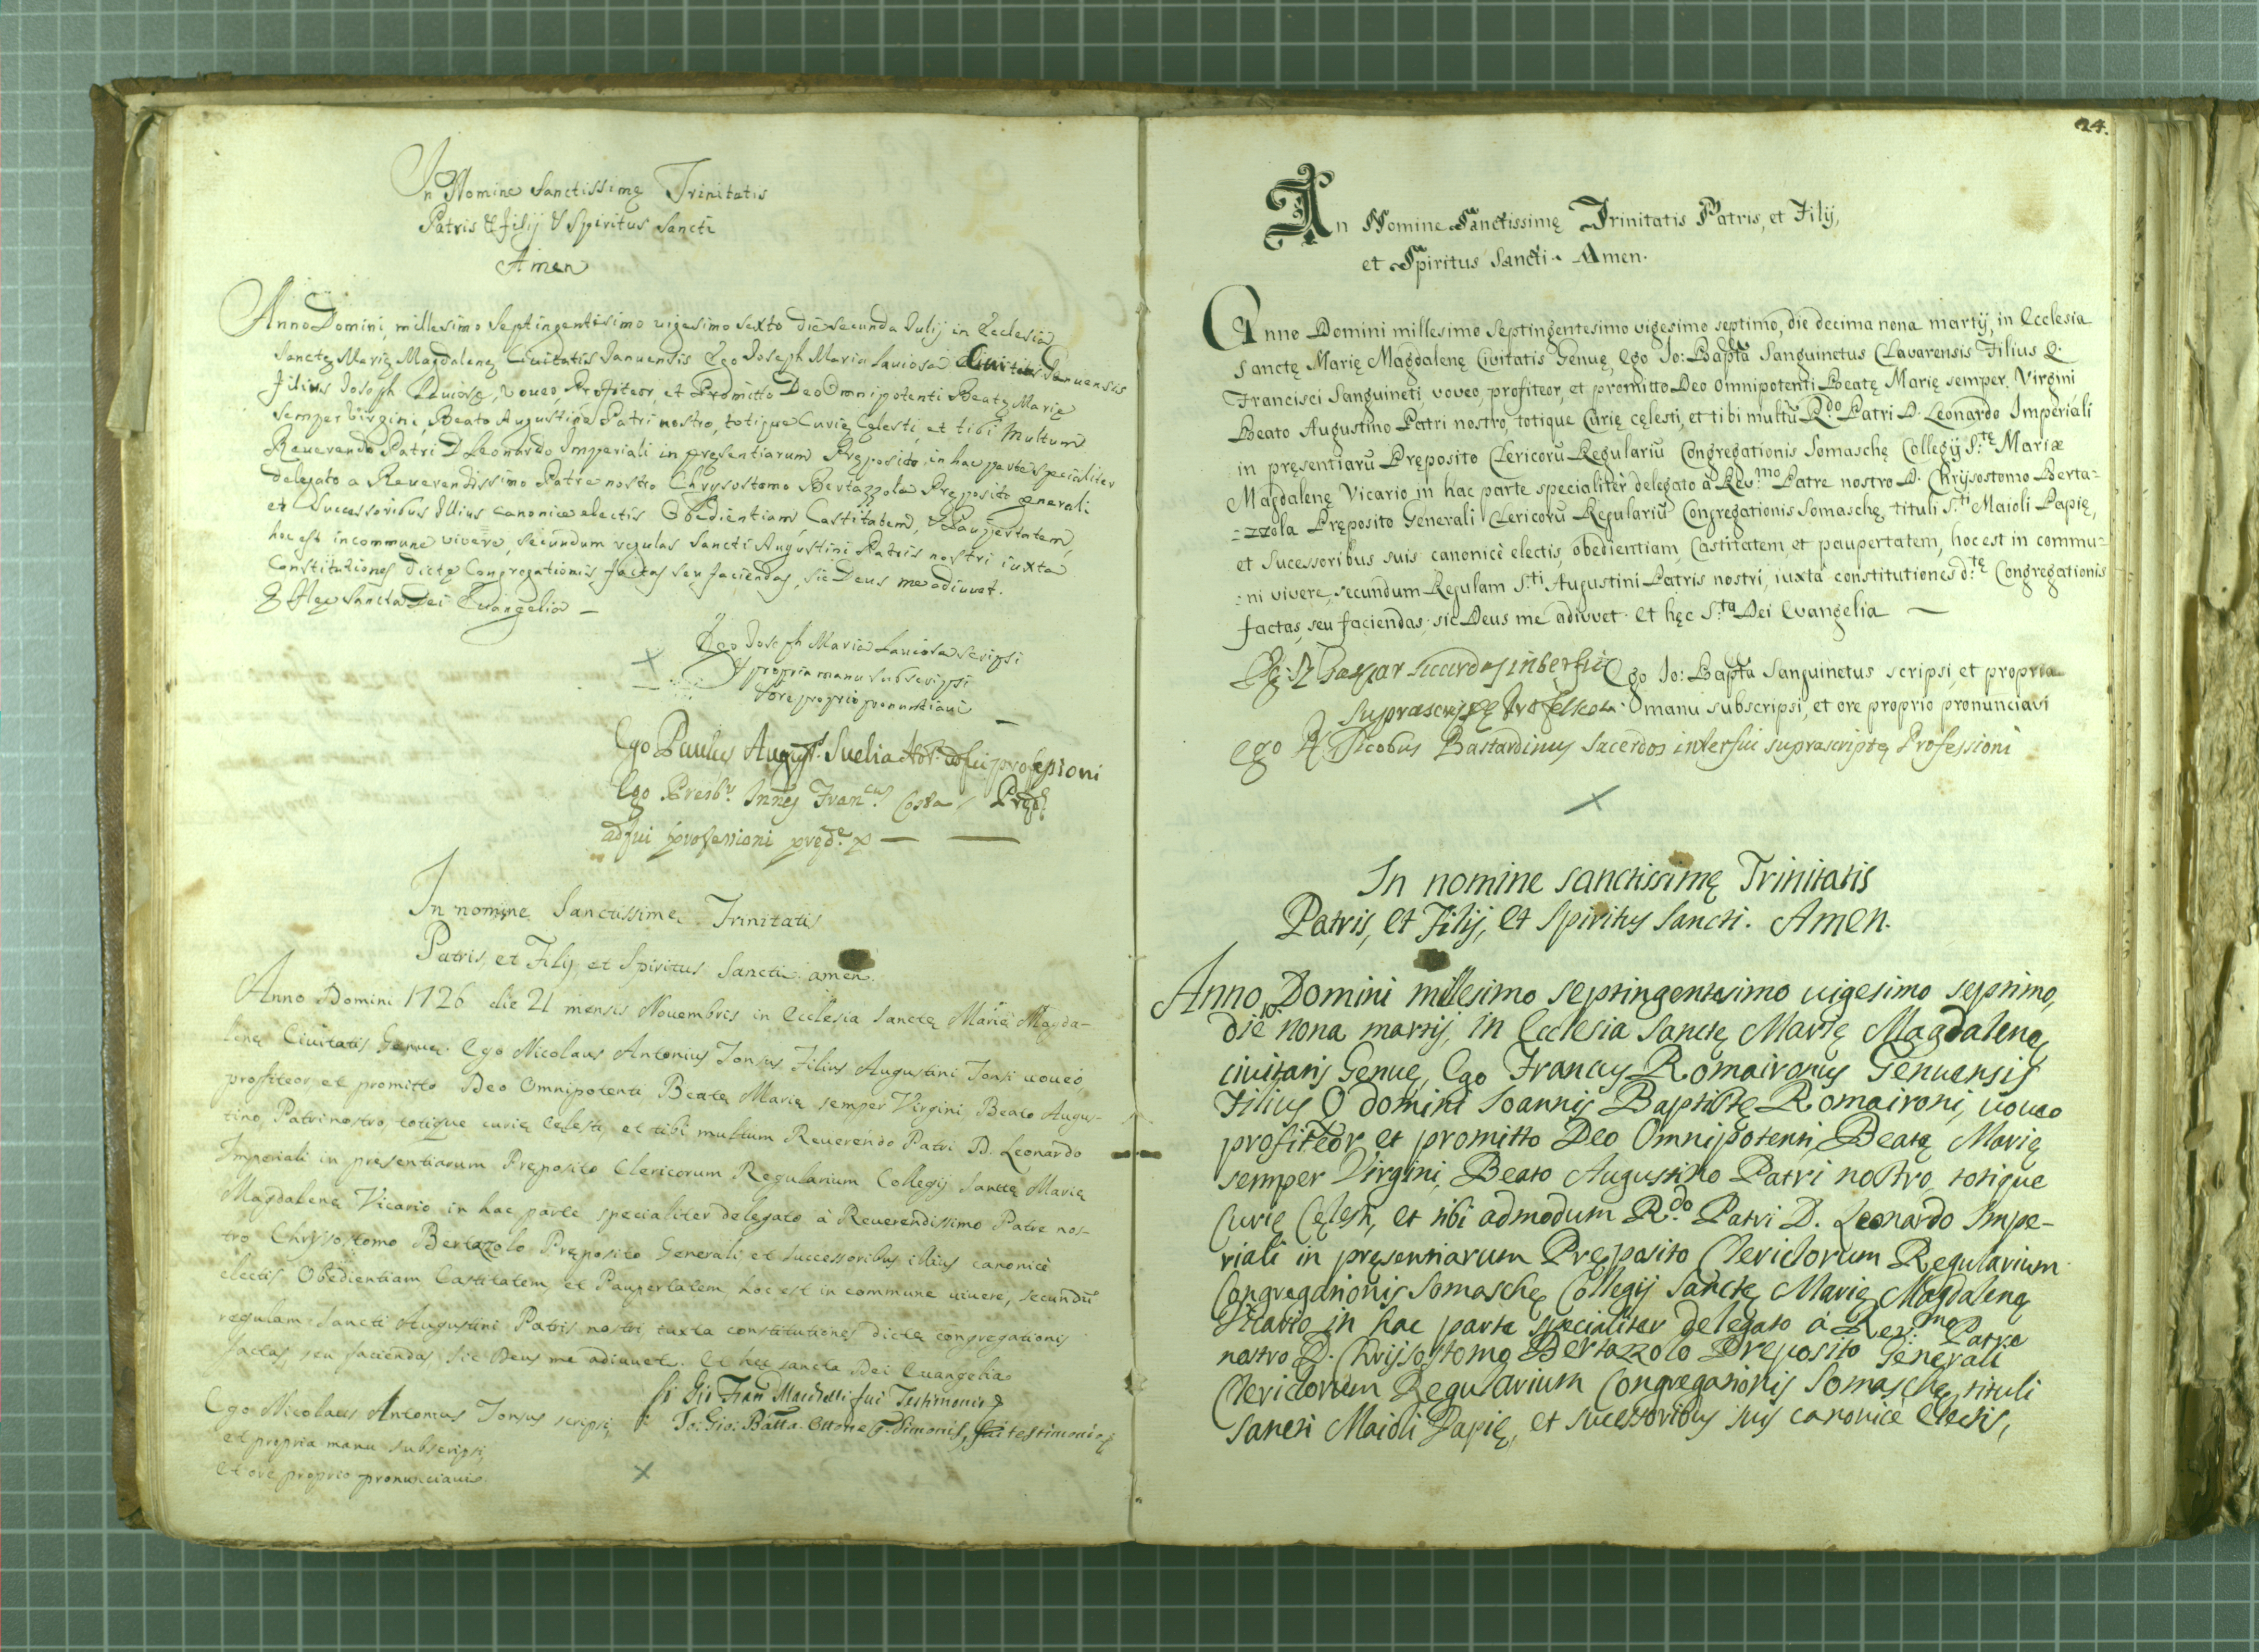 In Nomine Sanctissimę Trinitatis
Patris & Filij & Spiritus Sancti
Amen
Anno Domini, millesimo Septingentesimo uigesimo sexto die secunda Iulij in Ecclesia
Sanctę Marię Magdalenę Ciuitatis Ianuensis Ego Joseph Maria Lauiosa Ciuitatis Ianuensis
filius Joseph Lauiosę, voueo, Profiteor, et Promitto Deo Omnipotenti Beatę Marię
Semper Virgini, Beato Augustino Patri nostro, totique Curię Celesti, et tibi Multum
Reuerendo Patri D Leonardo Imperiali in presentiarum Pręposito, in hac parte specialiter
delegato a Reuerendissimo Patre nostro Chrysostomo Bertazzola Pręposito generali
et Successoribus Illius canonice electis Obedientiam Castitatem, & Paupertatem,
hoc est in commune vivere, secundum regulas Sancti Augustini Patris nostri iuxta
Constitutiones dictę Congregationis factas seu faciendas, sic Deus me adiuuet.
& Hęc Sancta Dei Euangelia —
Ego Joseph Maria Lauiosa scripsi
& propria manu subscripsi
& ore proprio pronuntiaui —
Ego Paulus August. Suelia adfui professioni
Ego Presbr. Francus. Costa
adfui professioni pręd.e —
In nomine Sanctissimę Trinitatis
Patris, et Filij, et Spiritus Sancti amen.
Anno Domini 1726 die 21 mensis Nouembris in Ecclesia Sanctę Marię Magda-
lenę Ciuitatis Genuę. Ego Nicolaus Antonius Tonsus Filius Augustini Tonsi uoueo,
proffiteor, et promitto Deo Omnipotenti, Beatę Marię semper Virgini, Beato Augus-
tino, Patri nostro, totique curię Celesti, et tibi multum Reuerendo Patri D. Leonardo
Imperiali in presentiarum Pręposito Clericorum Regularium Collegij Sanctę Marię
Magdalenę Vicario in hac parte specialiter delegato à Reuerendissimo Patre nos-
tro Chrysostomo Bertazolo Pręposito Generali, et successoribus illius canonicè
electis Obedientiam Castitatem, et Paupertatem, hoc est in commune uiuere, secundũ
regulam Sancti Augustini Patris nostri, iuxta constitutiones dictę congregationis
factas, seu faciendas sic Deus me adiuuet. Et hęc sancta Dei Euangelia
Ego Nicolaus Antonius Tonsus scripsi,
et propria manu subscripsi,
et ore proprio pronunciaui.
Gio Fran fui Testimonio
Io: Gio: Batta Ottone q. Simonis, fui testimonio
24.
In Nomine Sanctissimę Trinitatis Patris, et Filij,
et Spiritus Sancti. Amen.
Anno Domini millesimo Septingentesimo vigesimo septimo, die decima nona martij, in Ecclesia
Sanctę Marię Magdalenę Civitatis Genuę, Ego Io: Bapta Sanguinetus Clavarensis Filius Q.
Francisci Sanguineti, voveo, profiteor, et promitto Deo Omnipotenti Beatę Marię semper Virgini
Beato Augustino Patri nostro, totique Curię cęlesti, et tibi multũ R.do Patri D. Leonardo Imperiali
in pręsentiarũ Pręposito Clericorũ Regulariũ Congregationis Somaschę Collegij S.tę Mariæ
Magdalenę Vicario in hac parte specialitèr delegato à Rev.mo Patre nostro D. Chrijsostomo Berta=
=zzola Pręposito Generali Clericorũ Regulariũ Congregationis Somaschę, tituli S.ti Maioli Papię,
et Sucessoribus suis canonicè electis, obedientiam, Castitatem, et paupertatem, hoc est in commu=
=ni vivere, secundum Regulam S.ti Augustini Patris nostri, iuxta constitutiones d.tę Congregationis
factas, seu faciendas. sic Deus me adiuvet. Et hęc S.ta Dei Evangelia —
Ego Io: Bapta Sanguinetus scripsi et propria
manu subscripsi, et ore proprio pronunciavi
Gaspar sacerdos interfui
suprascriptę Professioni
Ego Jacobus Bastardinus Sacerdos interfui suprascriptę Professioni
In nomine sanctissimę Trinitatis
Patris, et Filij, et Spiritus Sancti. Amen.
Anno Domini millesimo septingentesimo uigesimo septimo,
die nona martij, in Ecclesia Sanctę Marię Magdalenę
ciuitatis Genuę, Ego Francus Romaironus Genuensis
Filius Q domini Ioannis Baptistę Romaironi, uoueo
profiteor et promitto Deo Omnipotenti, Beatę Marię
semper Virgini, Beato Augustino Patri nostro, totique
Curię Cęlesti, et tibi admodum R.do Patri D. Leonardo Impe-
riali in pręsentiarum Pręposito Clericorum Regularium
Congregationis Somaschę Collegij Sanctę Marię Magdalenę
Vicario in hac parte specialiter delegato à Reu.mo Patre
nostro D. Chrijsostomo Bertazzolo Preposito Generali
Clericorum Regularium Congregationis Somaschę, tituli
Sancti Maioli Papię, et sucessoribus suis canonicè electis,